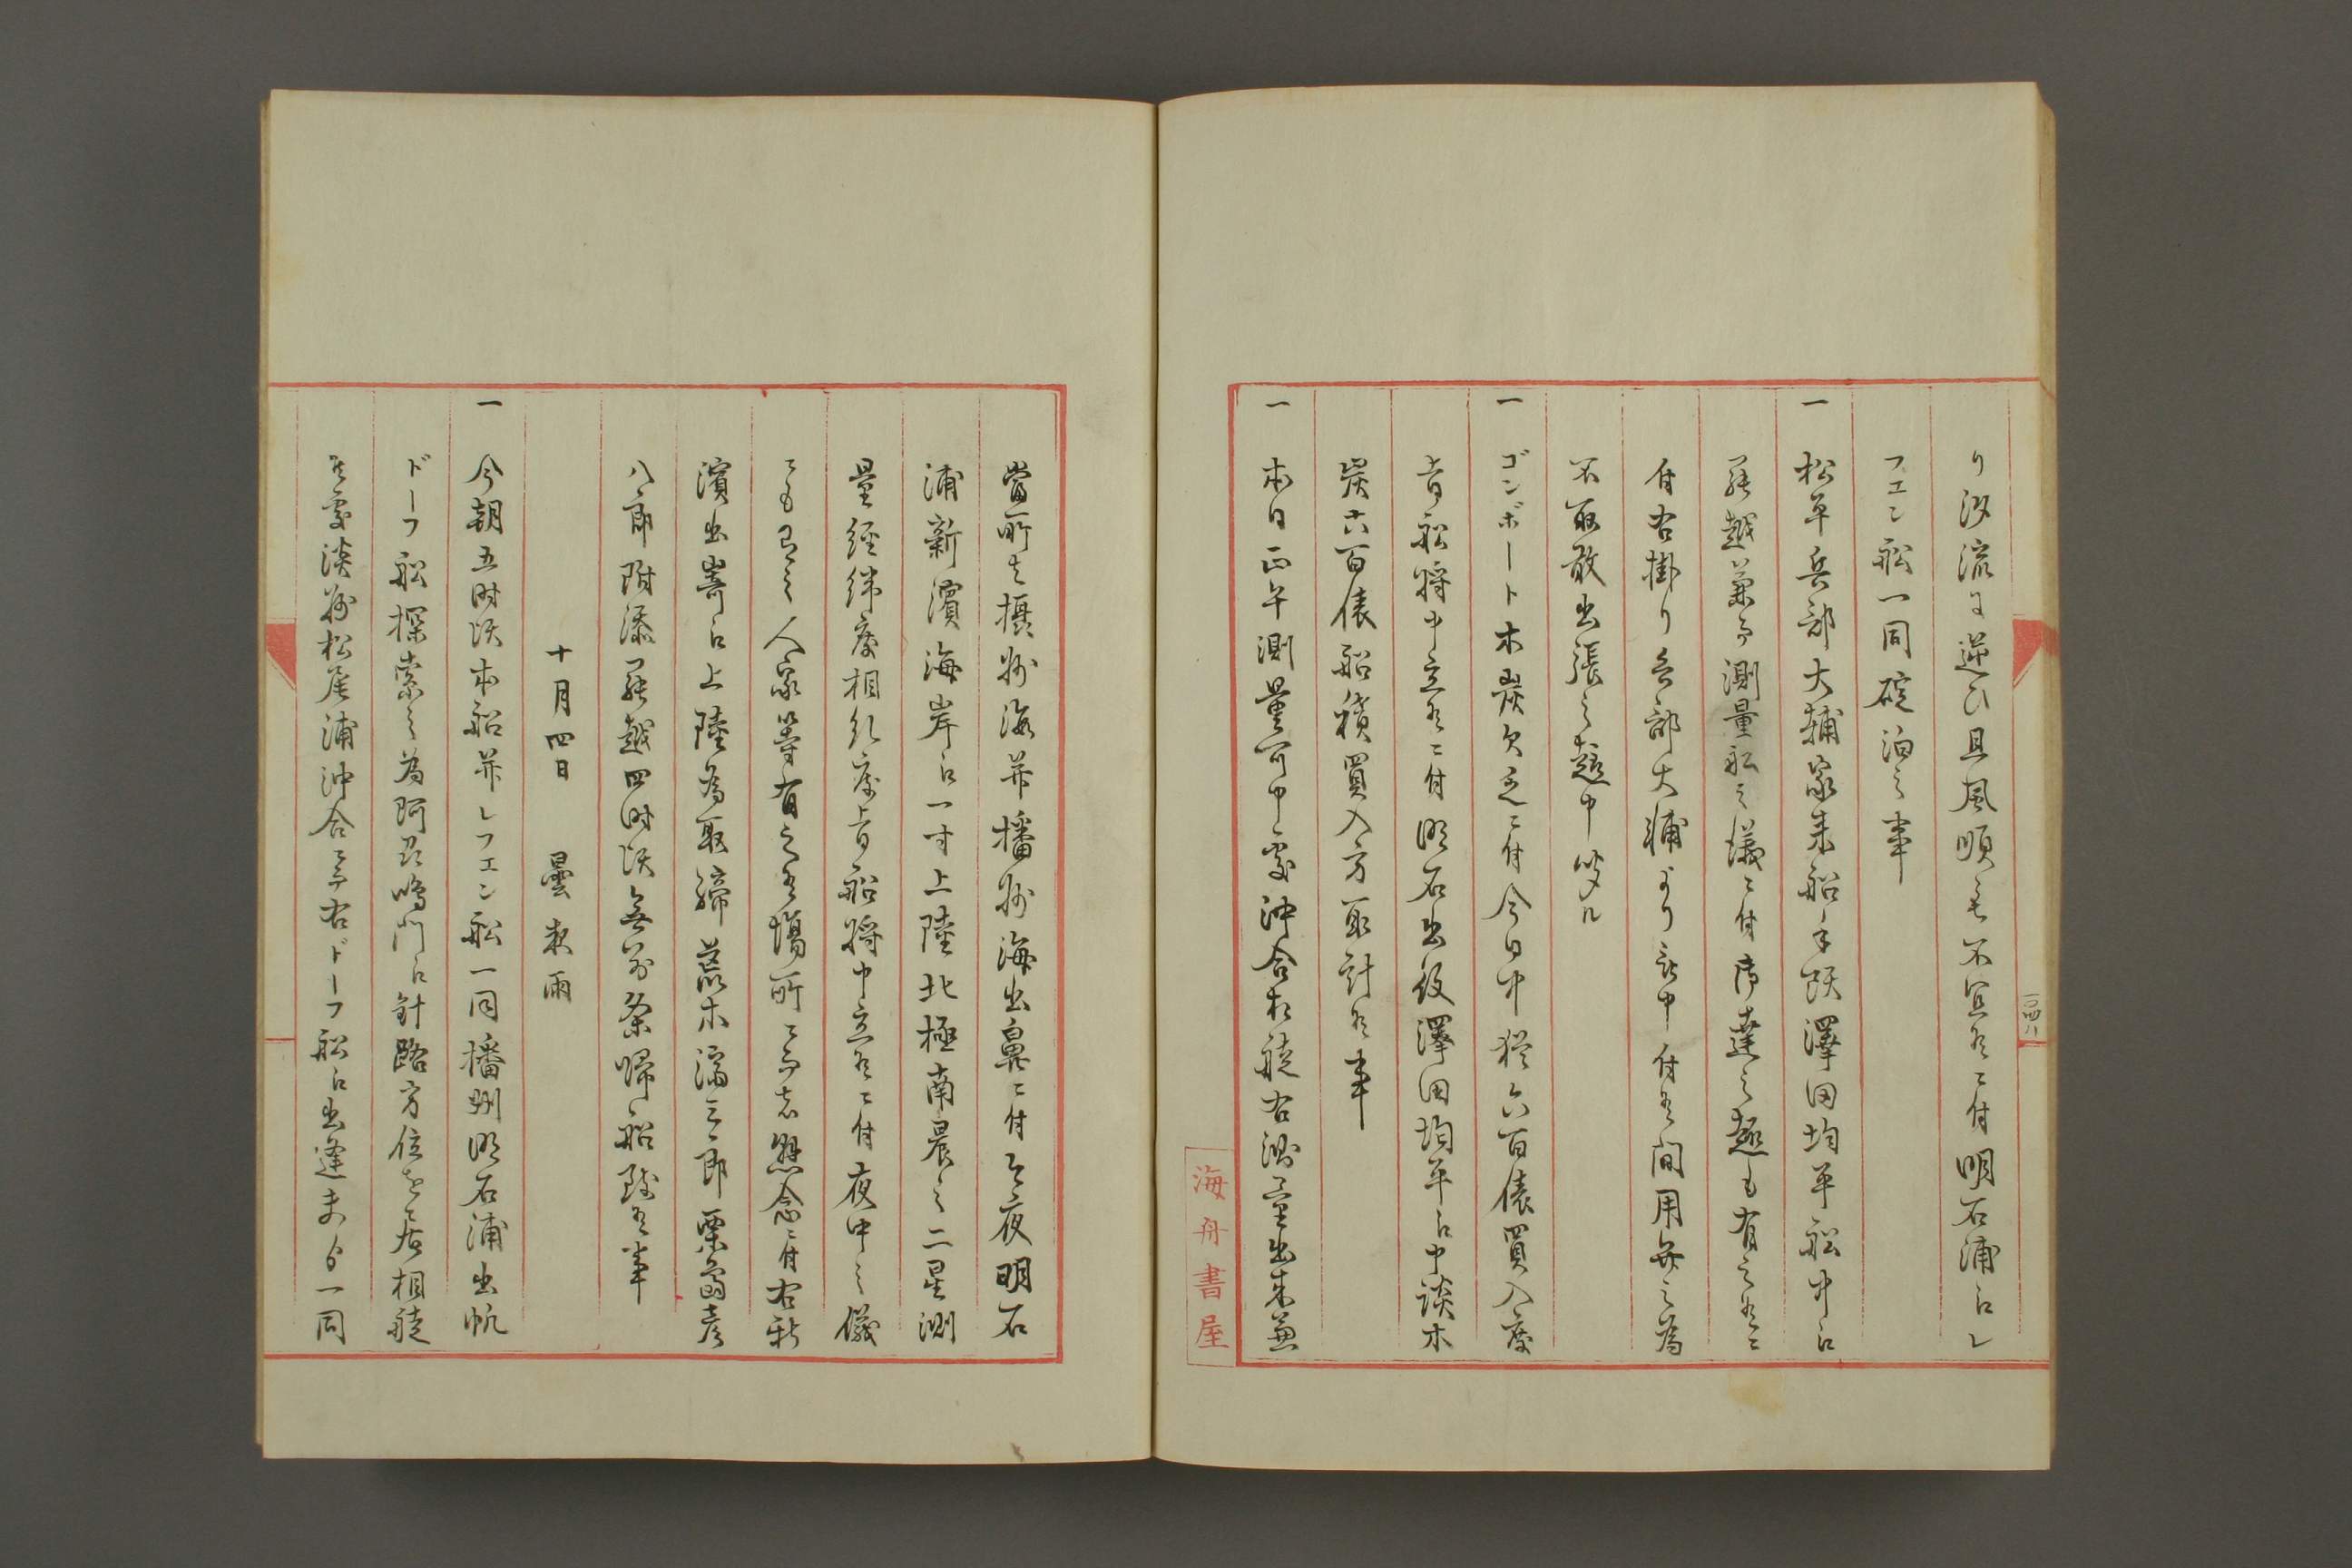 り汐流に逆ひ且風順も不宜候ニ付明石浦江レ
フエン船一同碇泊之事
一 松平兵部大輔家来船手頭澤田均平船中江
罷越兼而測量船之儀ニ付御達之趣も有之候ニ
付右掛り兵部大輔より申付候間用無之為
不取敢出張之趣申聞ル
一 ゴンボート木炭欠乏ニ付今日中様六百俵買入度
旨船将申立候ニ付明石出役澤田均平江申談木
炭六百俵船積買入方取計候事
一 本日正午測量可申處沖合相後右測量出来兼
海舟書屋
當所者摂州海并播州海出鼻ニ付今夜明石
浦新濱海岸江一寸上陸北極南晨之二星測
量經緯度相糺度旨船将申立候ニ付夜中之儀
ニも有之人家等有之候場所ニ而者懸念ニ付右新
濱出寄江上陸為取締荒木濟三郎栗嶋彦
八郎附添罷越四時頃無別条帰船致候事
十月四日 曇夜雨
一 今朝五時頃本船并レフエン船一同播州明石浦出帆
ドーフ船探索之為阿州鳴門江針路方位を居相後
候處淡州松尾浦沖合ニ而右ドーフ船江出逢夫より一同